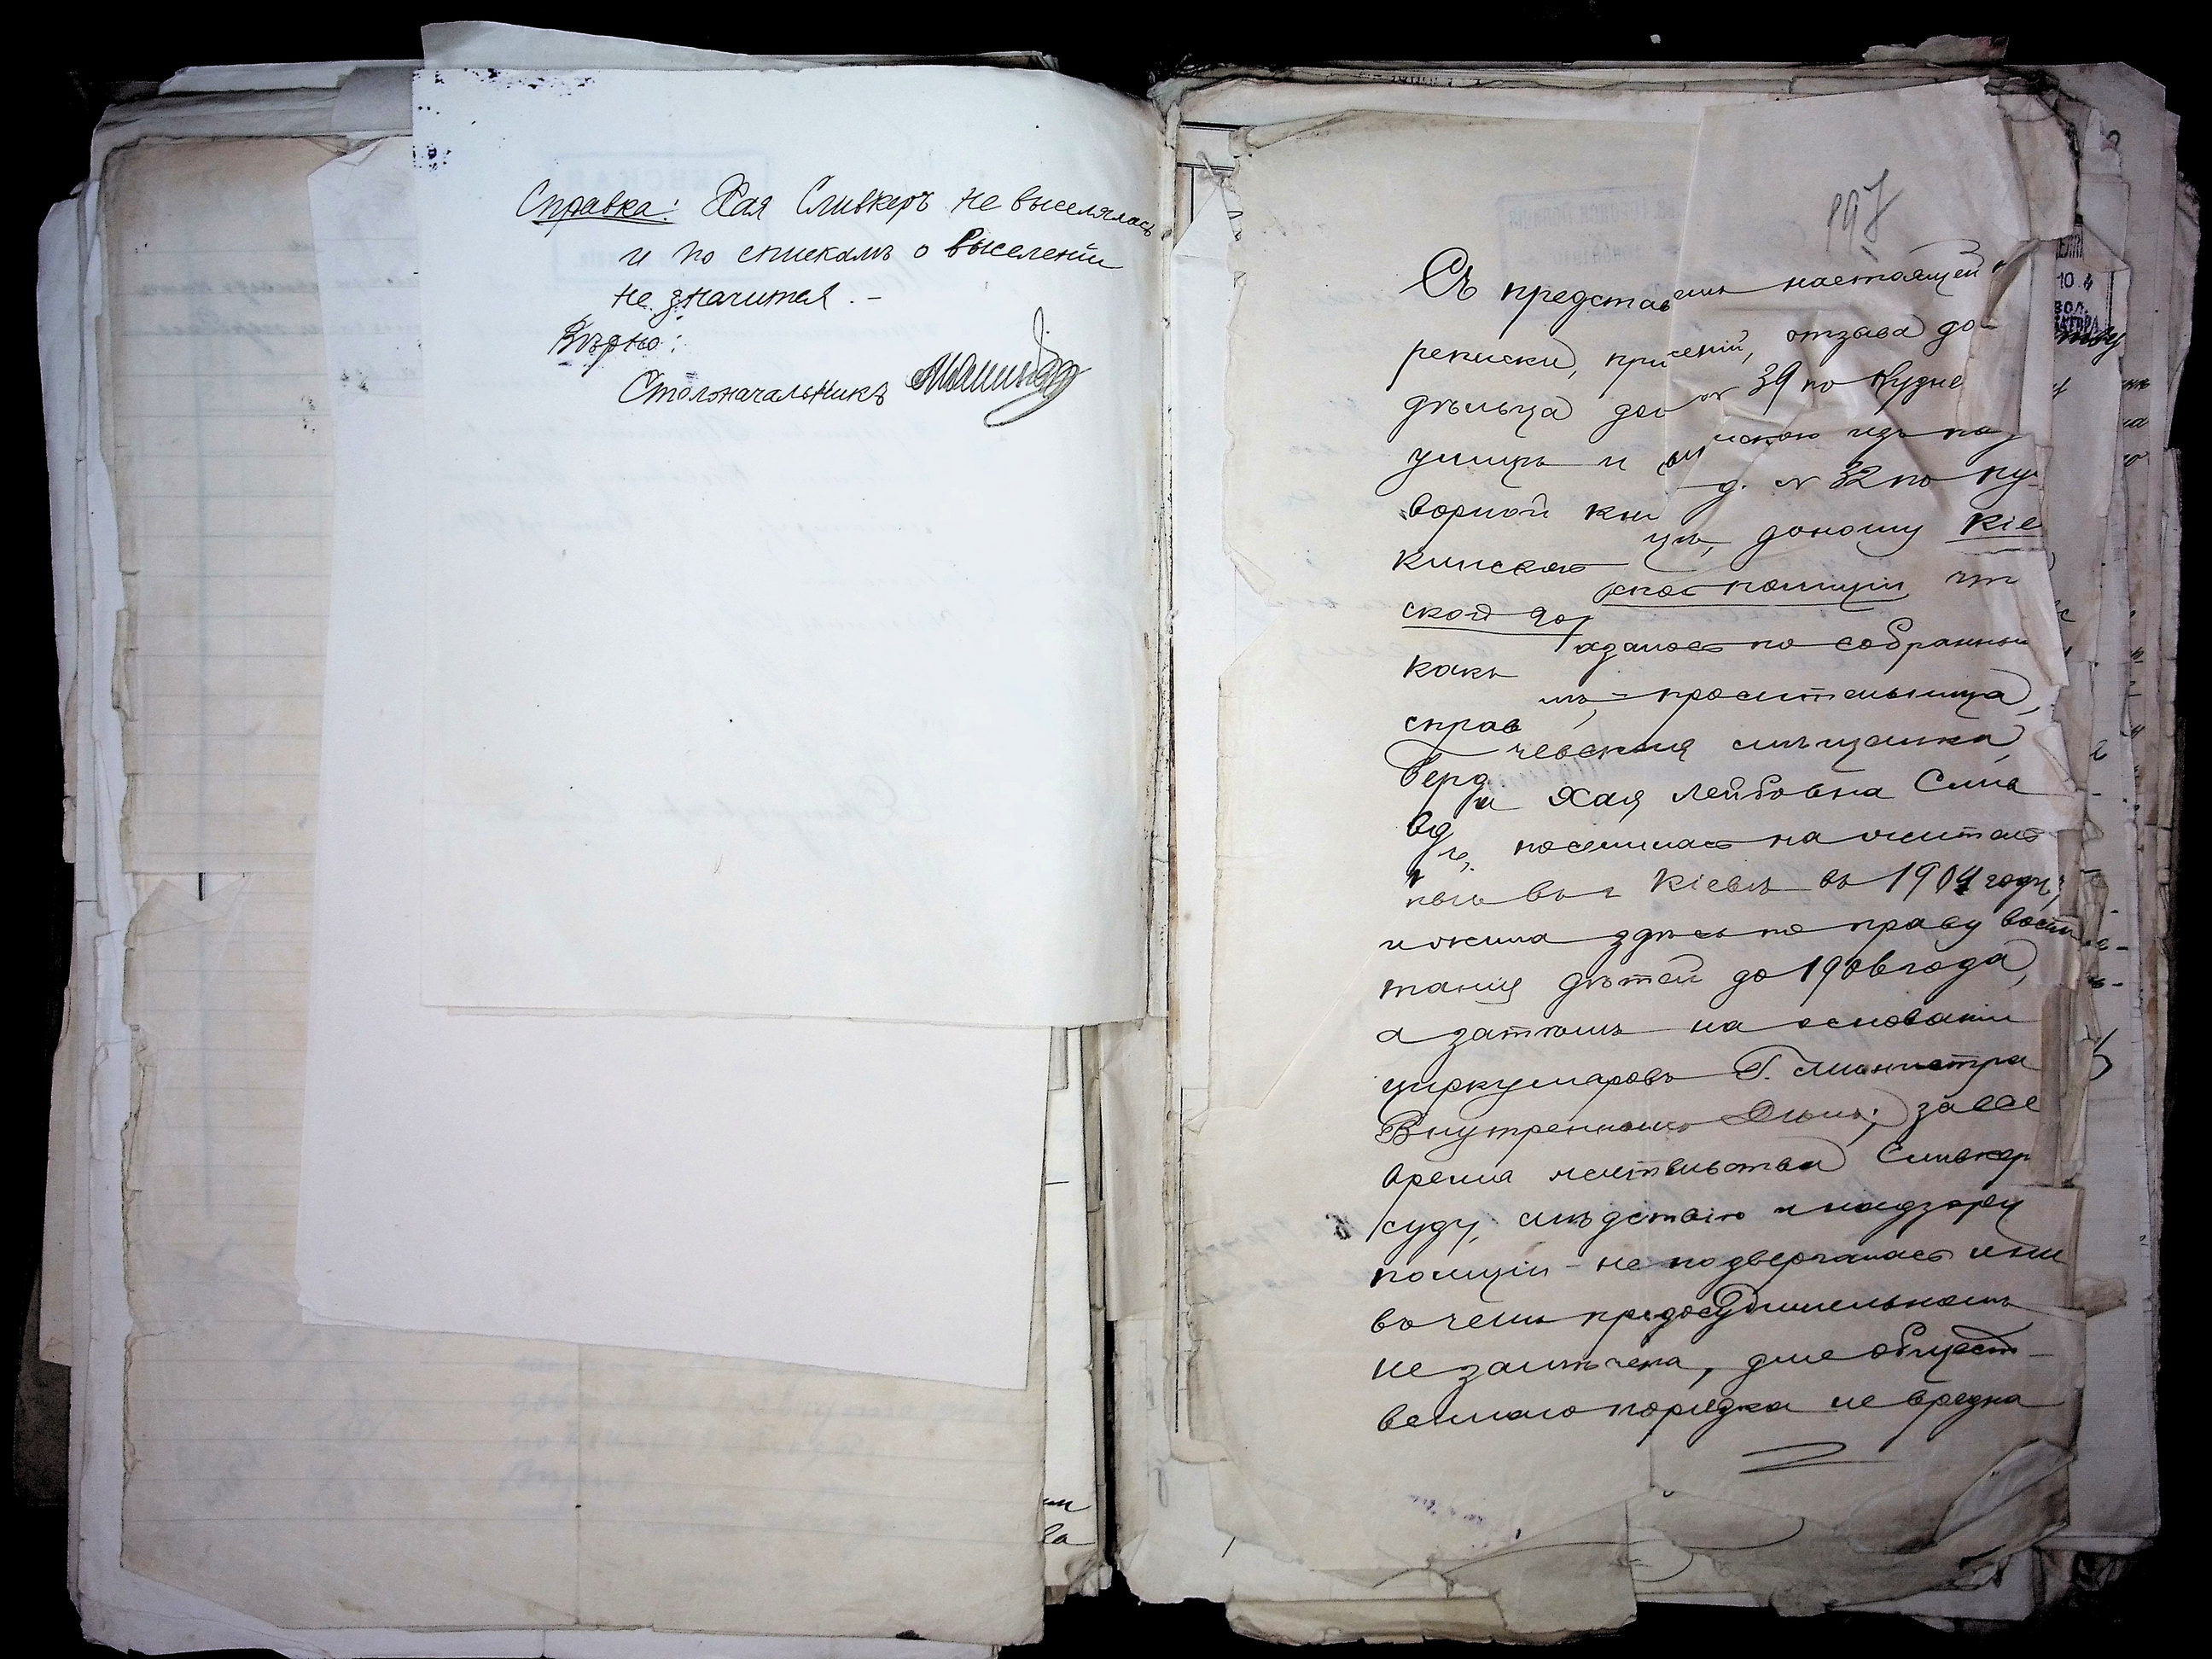 Справка: Хая Сливкеръ не выселялась
и по спискамъ о выселенiи
не значится. –
Вѣрно:
Столоначальникъ
197
Съ представ емъ настоящей
реписки, при сенiй, отзыва до
дѣльца до № 39 по Кузне
улицѣ и скою изъ по
ворной кни д. № 32 по ку
кинской цѣ, доношу Кiе
ской гор ской полицiи чт
какъ азалось по собранны
справ мъ, – просительница,
Берд чевская мѣщанка
вд а Хая Лейбовна Слив
ъ, поселилась на жител
въ г Кiевѣ въ 1904 году,
и жила здѣсь по праву восп
танiя дѣтей до 1906 года,
а затѣмъ на основанiи
циркуляровъ Г. Министра
Внутреннихъ Дѣлъ; за все
время жительства Сливкер
суду, слѣдствiю и надзору
полицiи – не подвергалась и ни
въ чемъ предосудительномъ
не замѣчена, для общест–
веннаго порядка не вредна